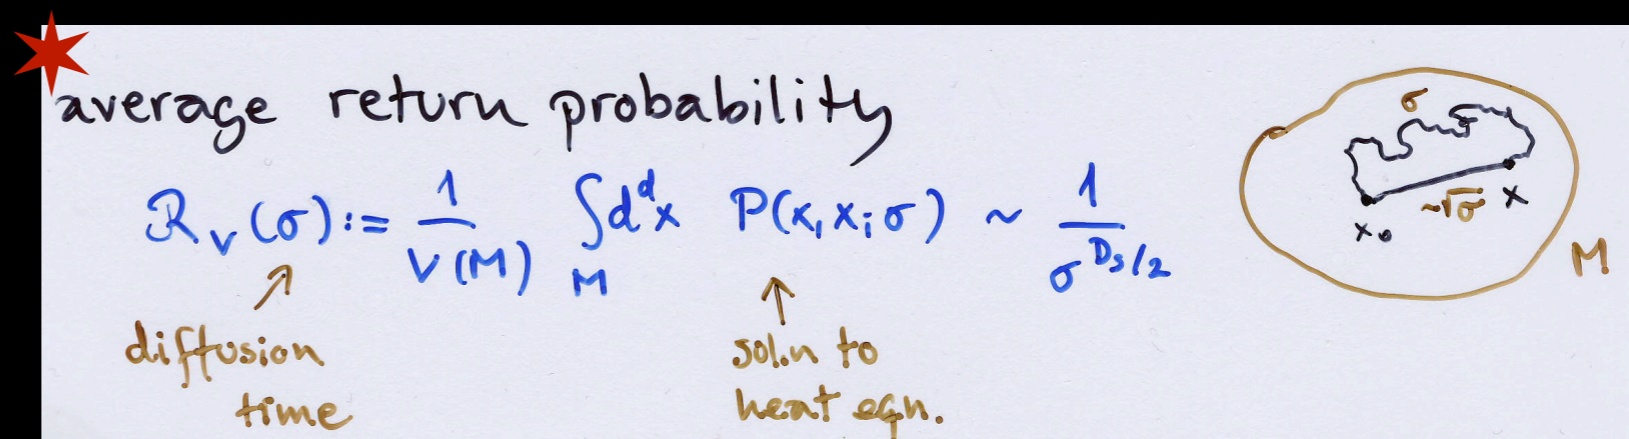 average return probability
R_V(σ) := 1/V(M) ∫_M d^d x P(x, x; σ) ~ 1/σ^{D_S/2}
diffusion
time
sol.n to
heat eqn.
σ
~√σ
x₀
x
M